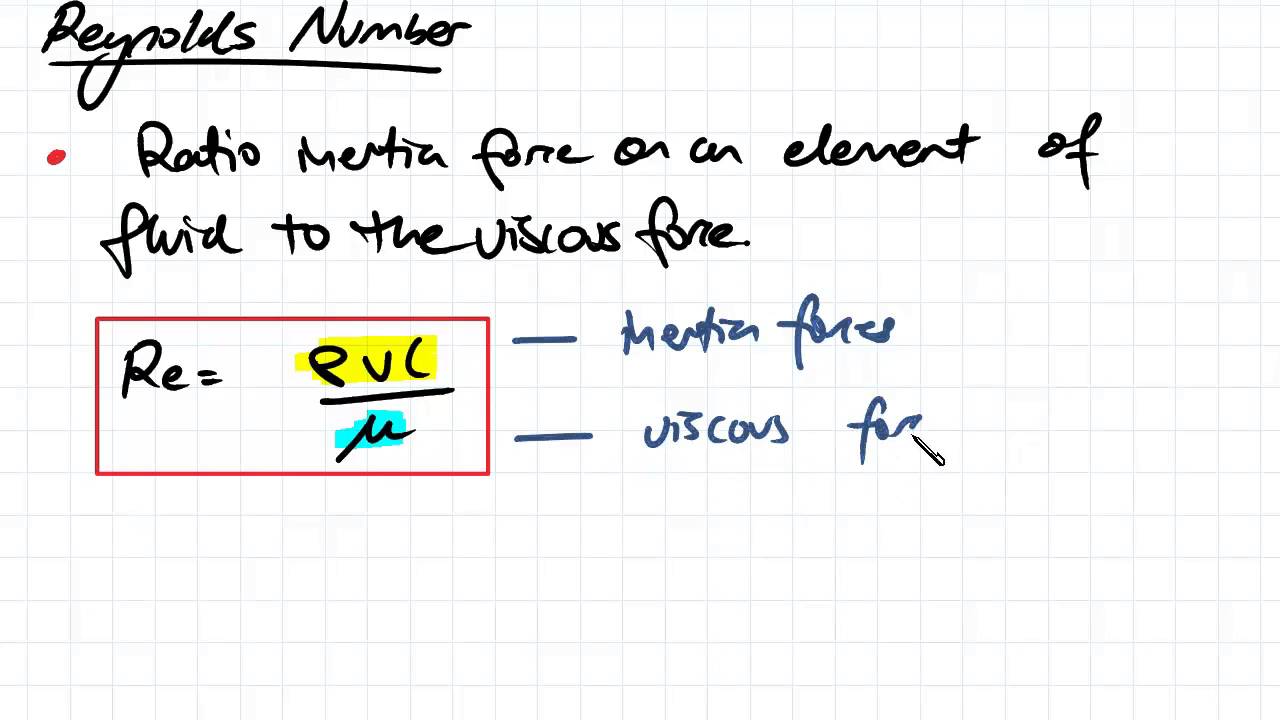 Reynolds Number
• Ratio inertia force on an element of
fluid to the viscous force.
Re = ρVL — inertia forces
μ — viscous for